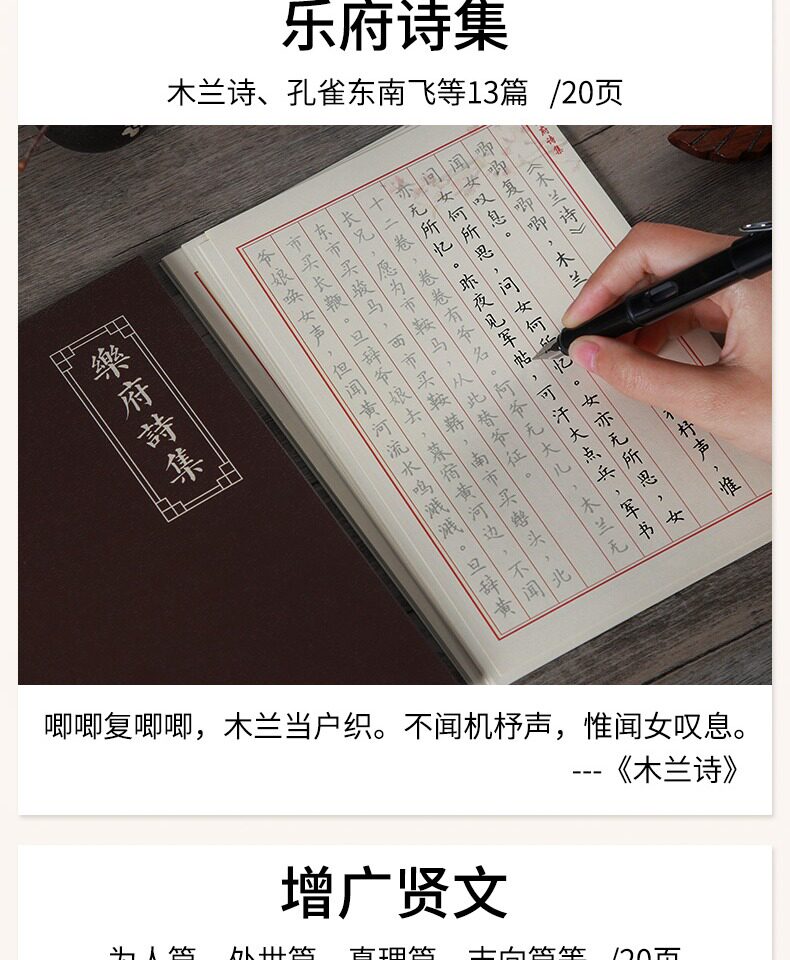 乐府诗集
木兰诗、孔雀东南飞等13篇 /20页
府诗集
《木兰诗》
唧唧复唧唧，木兰
杼声，惟
闻女叹息。
问女何所思，问女何所忆。女亦无所思，女
亦无所忆。昨夜见军帖，可汗大点兵，军书
十二卷，卷卷有爷名。阿爷无大儿，木兰无
长兄，愿为市鞍马，从此替爷征。
东市买骏马，西市买鞍鞯，南市买辔头，北
市买长鞭。旦辞爷娘去，暮宿黄河边，不闻
爷娘唤女声，但闻黄河流水鸣溅溅。旦辞黄
樂府詩集
唧唧复唧唧，木兰当户织。不闻机杼声，惟闻女叹息。
---《木兰诗》
增广贤文
为人篇、处世篇、真理篇、志向篇等 /20页